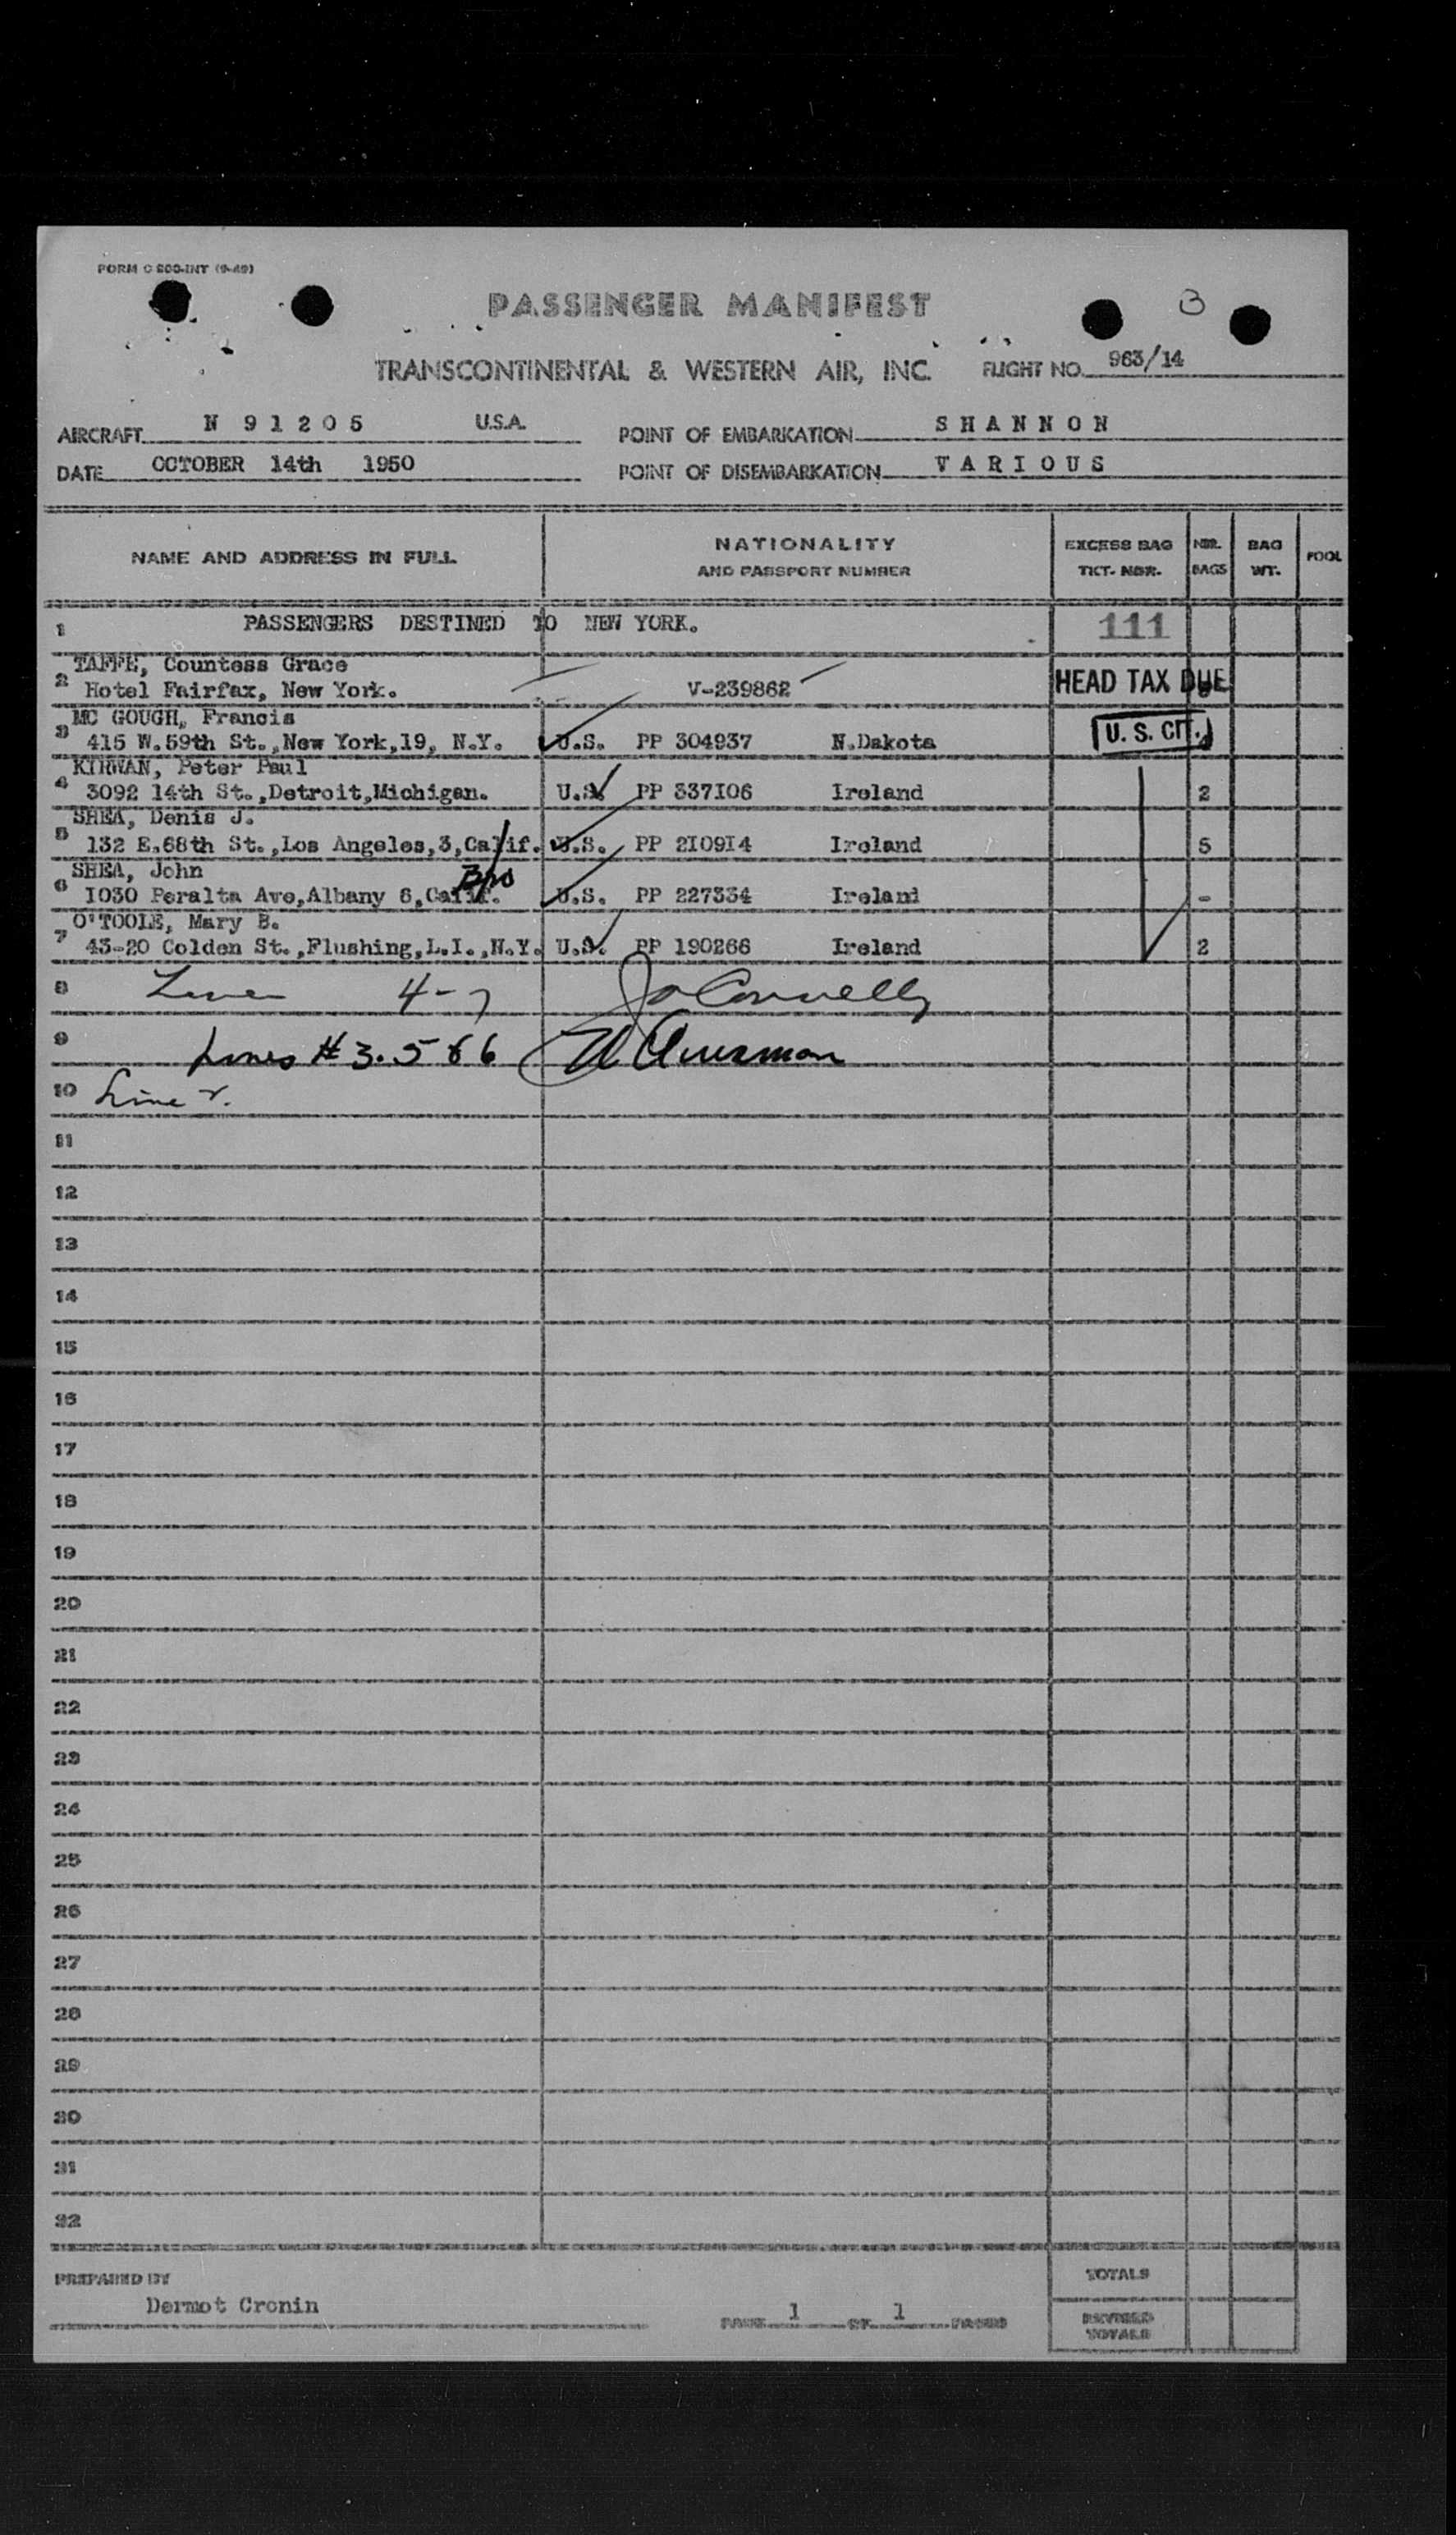 FORM C 800-INT (9-49)
PASSENGER MANIFEST
3
TRANSCONTINENTAL & WESTERN AIR, INC. FLIGHT NO. 963/14
AIRCRAFT N 9 1 2 0 5 U.S.A. POINT OF EMBARKATION S H A N N O N
DATE OCTOBER 14th 1950 POINT OF DISEMBARKATION V A R I O U S
NAME AND ADDRESS IN FULL NATIONALITY AND PASSPORT NUMBER EXCESS BAG TICT. NBR. NBR. BAGS BAG WT. POOL
1 PASSENGERS DESTINED TO NEW YORK. 111
TAFFE, Countess Grace
2 Hotel Fairfax, New York. V-239862 HEAD TAX DUE
MC GOUGH, Francis
3 415 W.59th St.,New York,19, N.Y. U.S. PP 304937 N.Dakota U. S. CIT.
KIRWAN, Peter Paul
4 3092 14th St.,Detroit,Michigan. U.S. PP 337I06 Ireland 2
SHEA, Denis J.
5 132 E.68th St.,Los Angeles,3,Calif. U.S. PP 2I09I4 Ireland 5
SHEA, John
6 I030 Peralta Ave,Albany 6,Calif. U.S. PP 227334 Ireland -
O'TOOLE, Mary B.
7 43-20 Colden St.,Flushing,L.I.,N.Y. U.S. PP 190266 Ireland 2
8 4-7 Connelly
9 Lines # 3.5 & 6
10 Line 2.
11
12
13
14
15
16
17
18
19
20
21
22
23
24
25
26
27
28
29
30
31
32
PREPARED BY TOTALS
Dermot Cronin PAGE 1 OF 1 PAGES REVISED TOTALS